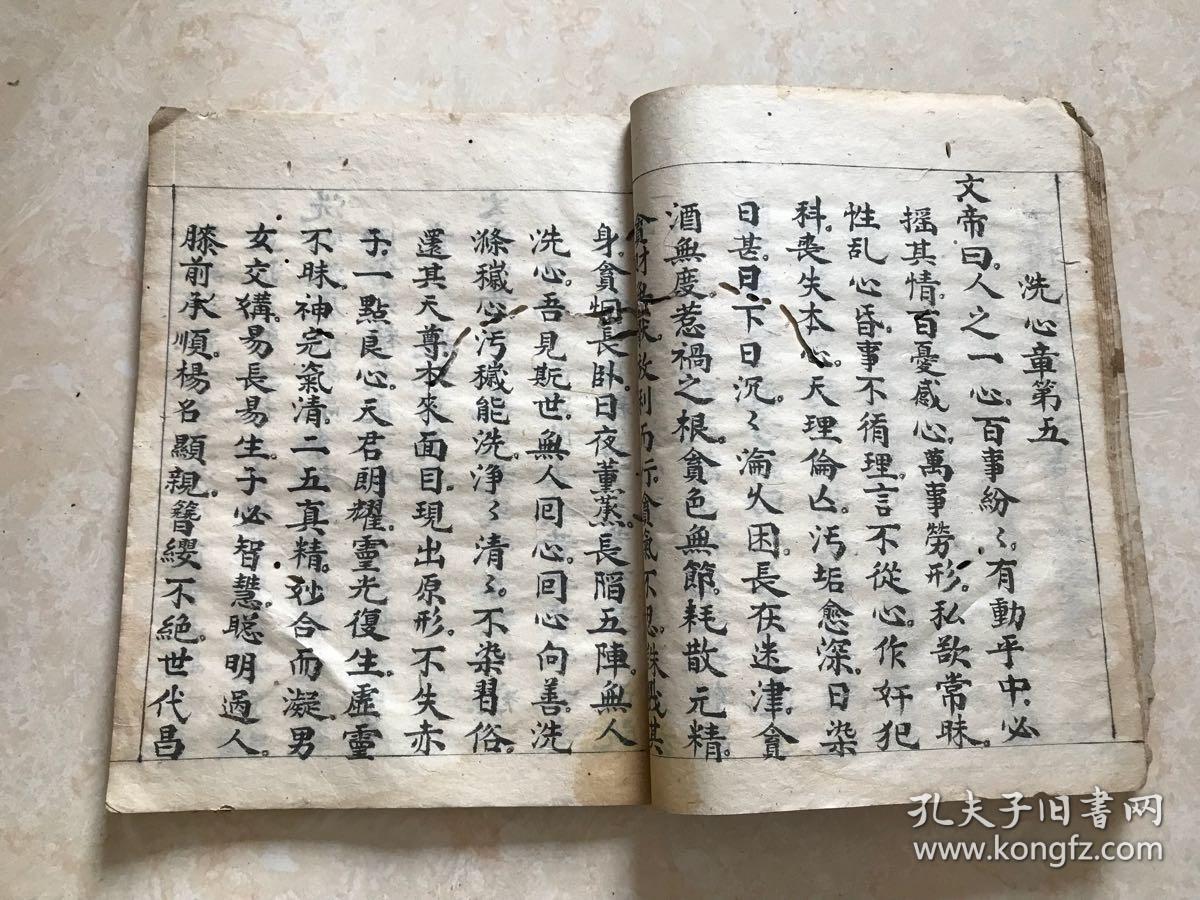 洗心章第五
文帝曰。人之一心。百事紛〻。有動乎中。必
摇其情。百憂感心。萬事勞形。私欲常昧。
性乱心昏。事不循理。言不從心。作奸犯
科。喪失本心。天理倫亾。污垢愈深。日染
日甚。日下日沉〻淪火困。長在迷津。貪
酒無度。惹禍之根。貪色無節。耗散元精。
貪財無厭。放利而行。貪氣不忍。銖戕其
身。貪長卧。日夜薰蒸。長陷五陣。無人
洗心。吾見斯世。無人回心。回心向善。洗
滌穢心。污穢能洗。净〻清〻。不染習俗。
還其天尊。本來面目。現出原形。不失赤
子。一點良心。天君朗耀。靈光復生。虛靈
不昧。神完氣清。二五真精。妙合而凝。男
女交媾。易長易生。子必智慧。聡明過人。
膝前承順。楊名顯親。簪纓不絕。世代昌
孔夫子旧书网
www.kongfz.com